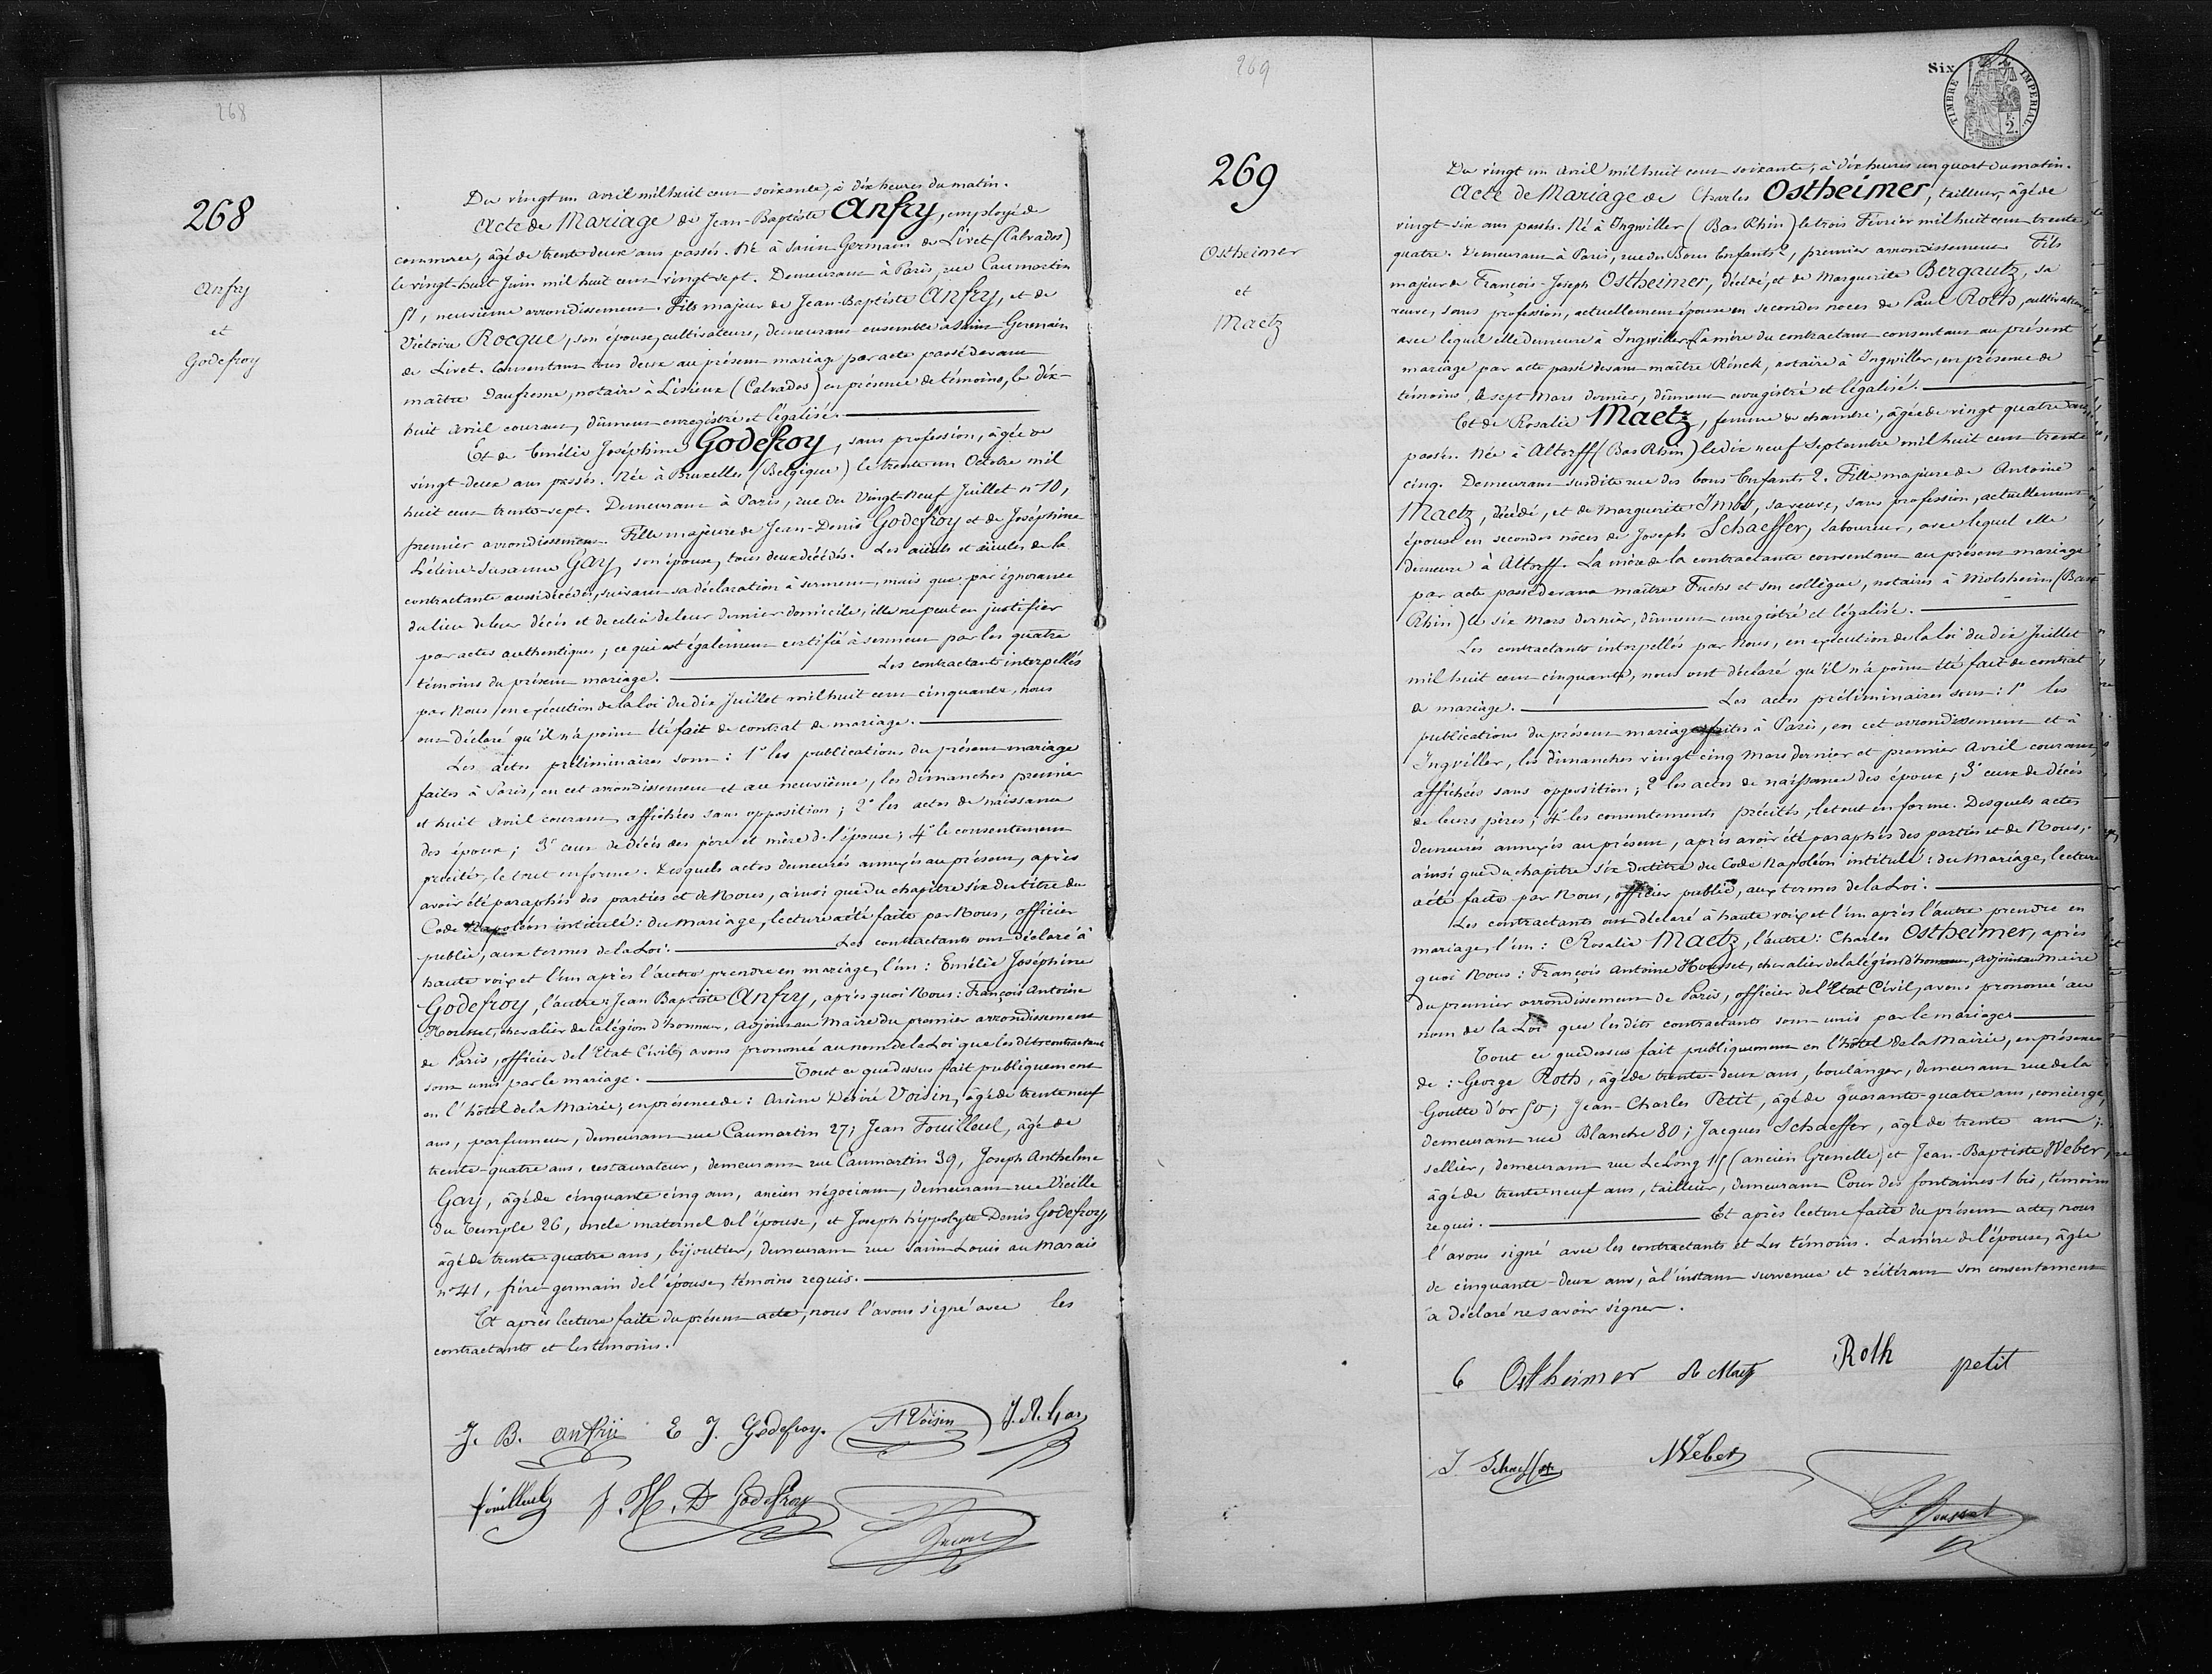 268
268
Anfry
et
Godefroy
Du vingt un avril mil huit cent soixante, à dix heures du matin.
Acte de Mariage de Jean-Baptiste Anfry, employé de
commerce, âgé de trente-deux ans passés. Né à Saint Germain de Livet (Calvados)
le vingt-huit Juin mil huit cent vingt-sept. Demeurant à Paris, rue Caumartin
51, neuvième arrondissement. Fils majeur de Jean-Baptiste Anfry, et de
Victoire Rocque, son épouse, cultivateurs, demeurant ensemble à Saint Germain
de Livet. Consentant tous deux au présent mariage par acte passé devant
maître Daufresne, notaire à Lisieux (Calvados) en présence de témoins, le dix-
huit avril courant, dûment enregistré et légalisé.
Et de Emélie Joséphine Godefroy, sans profession, âgée de
vingt-deux ans passés. Née à Bruxelles (Belgique) le trente un Octobre mil
huit cent trente-sept. Demeurant à Paris, rue du Vingt-Neuf Juillet n° 10,
premier arrondissement. Fille majeure de Jean-Denis Godefroy et de Joséphine
Susanne Gay, son épouse, tous deux décédés. Les aïeuls et aïeules de la
contractante aussi décédés, suivant sa déclaration à serment, mais que par ignorance
du lieu de leur décès et de celui de leur dernier domicile, elle ne peut en justifier
par actes authentiques; ce qui est également certifié à serment par les quatre
témoins du présent mariage. Les contractants interpellés
par Nous, en exécution de la loi du dix Juillet mil huit cent cinquante, nous
ont déclaré qu'il n'a point été fait de contrat de mariage.
Les actes préliminaires sont: 1° les publications du présent mariage
faites à Paris, en cet arrondissement et au neuvième, les dimanches premier
et huit avril courant, affichées sans opposition; 2° les actes de naissance
des époux; 3° ceux de décès des père et mère de l'épouse; 4° le consentement
précité, le tout en forme. Desquels actes demeurés annexés au présent, après
avoir été paraphés des parties et de Nous, ainsi que du chapitre six du titre du
Code Napoléon intitulé: du Mariage, lecture a été faite par Nous, officier
public, aux termes de la Loi. Les contractants ont déclaré à
haute voix et l'un après l'autre prendre en mariage, l'un: Emélie Joséphine
Godefroy, l'autre: Jean Baptiste Anfry, après quoi Nous: François Antoine
Housset, chevalier de la légion d'honneur, Adjoint au Maire du premier arrondissement
de Paris, officier de l'Etat Civil, avons prononcé au nom de la Loi que les dits contractants
sont unis par le mariage. Tout ce que dessus fait publiquement
en l'hôtel de la Mairie, en présence de: Arsène Désiré Voisin, âgé de trente neuf
ans, parfumeur, demeurant rue Caumartin 27; Jean Fouilleul, âgé de
trente-quatre ans, restaurateur, demeurant rue Caumartin 39, Joseph Anthelme
Gay, âgé de cinquante cinq ans, ancien négociant, demeurant rue Vieille
du Temple 26, oncle maternel de l'épouse, et Joseph Hippolyte Denis Godefroy,
âgé de trente-quatre ans, bijoutier, demeurant rue Saint-Louis au Marais
n° 41, frère germain de l'épouse, témoins requis.
Et après lecture faite du présent acte, nous l'avons signé avec les
contractants et les témoins.
J. B. anfry E J. Godefroy. A Voisin J. A. Gay
fouilleul J. H. D Godefroy
269
269
Ostheimer
et
Maetz
Six
TIMBRE IMPERIAL
2.
Du vingt un avril mil huit cent soixante, à dix heures un quart du matin.
Acte de Mariage de Charles Ostheimer, tailleur, âgé de
vingt-six ans passés. Né à Ingwiller (Bas Rhin) le trois Février mil huit cent trente
quatre. Demeurant à Paris, rue des Bons Enfants 2, premier arrondissement. Fils
majeur de François-Joseph Ostheimer, décédé, et de Marguerite Bergautz, sa
veuve, sans profession, actuellement épouse en secondes noces de Paul Roth, cultivateur
avec lequel elle demeure à Ingwiller. La mère du contractant consentant au présent
mariage par acte passé devant maître Rinck, notaire à Ingwiller, en présence de
témoins, le sept Mars dernier, dûment enregistré et légalisé.
Et de Rosalie Maetz, femme de chambre, âgée de vingt quatre ans
passés. Née à Altorff (Bas Rhin) le dix neuf Septembre mil huit cent trente
cinq. Demeurant susdite rue des bons Enfants 2. Fille majeure de Antoine
Maetz, décédé, et de Marguerite Imbs, sa veuve, sans profession, actuellement
épouse en secondes nôces de Joseph Schaeffer, laboureur, avec lequel elle
demeure à Altorff. La mère de la contractante consentant au présent mariage
par acte passé devant maître Fuchs et son collègue, notaires à Molsheim (Bas
Rhin) le six Mars dernier, dûment enregistré et légalisé.
Les contractants interpellés par Nous, en exécution de la loi du dix Juillet
mil huit cent cinquante, nous ont déclaré qu'il n'a point été fait de contrat
de mariage. Les actes préliminaires sont: 1° les
publications du présent mariage faites à Paris, en cet arrondissement et à
Ingviller, les dimanches vingt cinq Mars dernier et premier Avril courant,
affichées sans opposition; 2° les actes de naissance des époux; 3° ceux de décès
de leurs pères; 4° les consentements précités, le tout en forme. Desquels actes
demeurés annexés au présent, après avoir été paraphés des parties et de Nous,
ainsi que du chapitre six du titre du Code Napoléon intitulé: du Mariage, lecture
a été faite par Nous, officier public, aux termes de la Loi.
Les contractants ont déclaré à haute voix et l'un après l'autre prendre en
mariage, l'un: Rosalie Maetz, l'autre: Charles Ostheimer, après
quoi Nous: François Antoine Housset, chevalier de la légion d'honneur, Adjoint au Maire
du premier arrondissement de Paris, officier de l'Etat Civil, avons prononcé au
nom de la Loi que les dits contractants sont unis par le mariage.
Tout ce que dessus fait publiquement en l'hôtel de la Mairie, en présence
de: George Roth, âgé de trente-deux ans, boulanger, demeurant rue de la
Goutte d'or 50; Jean-Charles Petit, âgé de quarante-quatre ans, concierge,
demeurant rue Blanche 80; Jacques Schaeffer, âgé de trente ans;
sellier, demeurant rue LeLong 15 (ancien Grenelle) et Jean-Baptiste Weber,
âgé de trente neuf ans, tailleur, demeurant Cour des fontaines 1 bis, témoins
requis. Et après lecture faite du présent acte, nous
l'avons signé avec les contractants et les témoins. La mère de l'épouse, âgée
de cinquante-deux ans, à l'instant survenue et réitérant son consentement
a déclaré ne savoir signer.
C Ostheimer R Maetz Roth petit
J. Schaeffer Weber
Housset